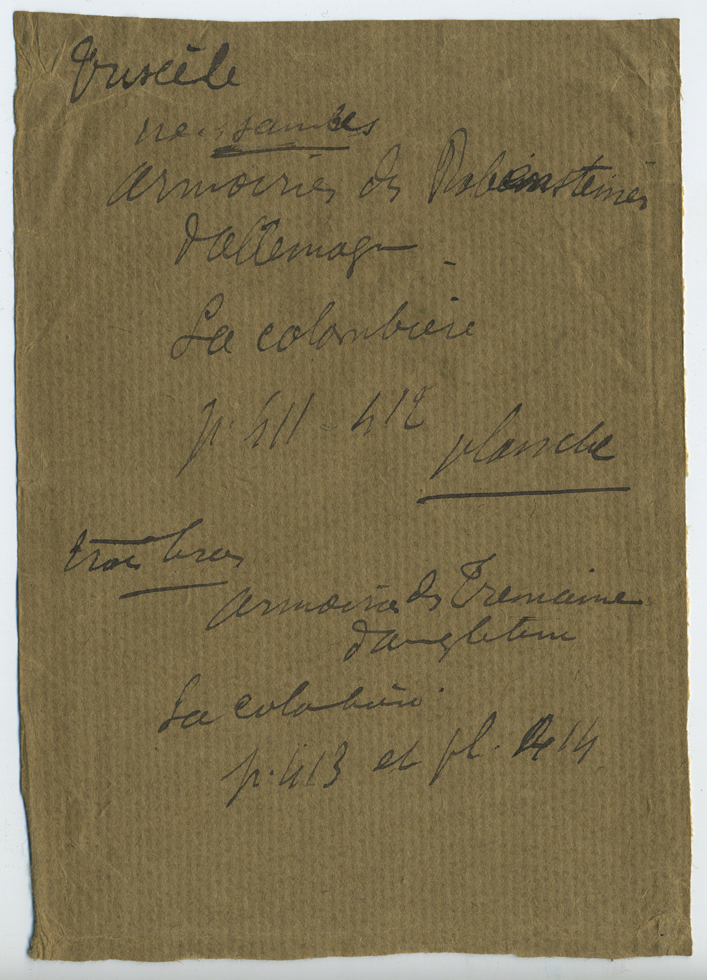 Triscèle
trois jambes
armoiries des Rabensteiner
d'allemagne
La colombière
p. 411-412
planche
trois bras
armoiries des Tremaine
d'angleterre
La colombière.
p. 413 et pl. 414